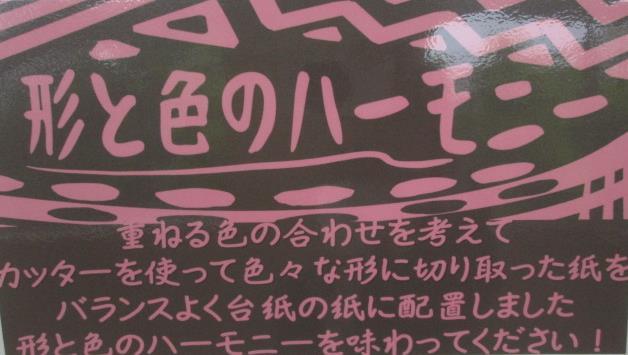 形と色のハーモニー
重ねる色の合わせを考えて
カッターを使って色々な形に切り取った紙を
バランスよく台紙の紙に配置しました
形と色のハーモニーを味わってください！